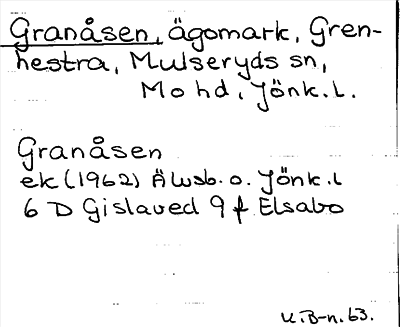 Granåsen, ägomark, Gren-
hestra, Mulseryds sn,
Mo hd, Jönk.l.
Granåsen
ek (1962) Älvsb. o. Jönk.l
6 D Gislaved 9 f Elsabo
U.B-n. 63.